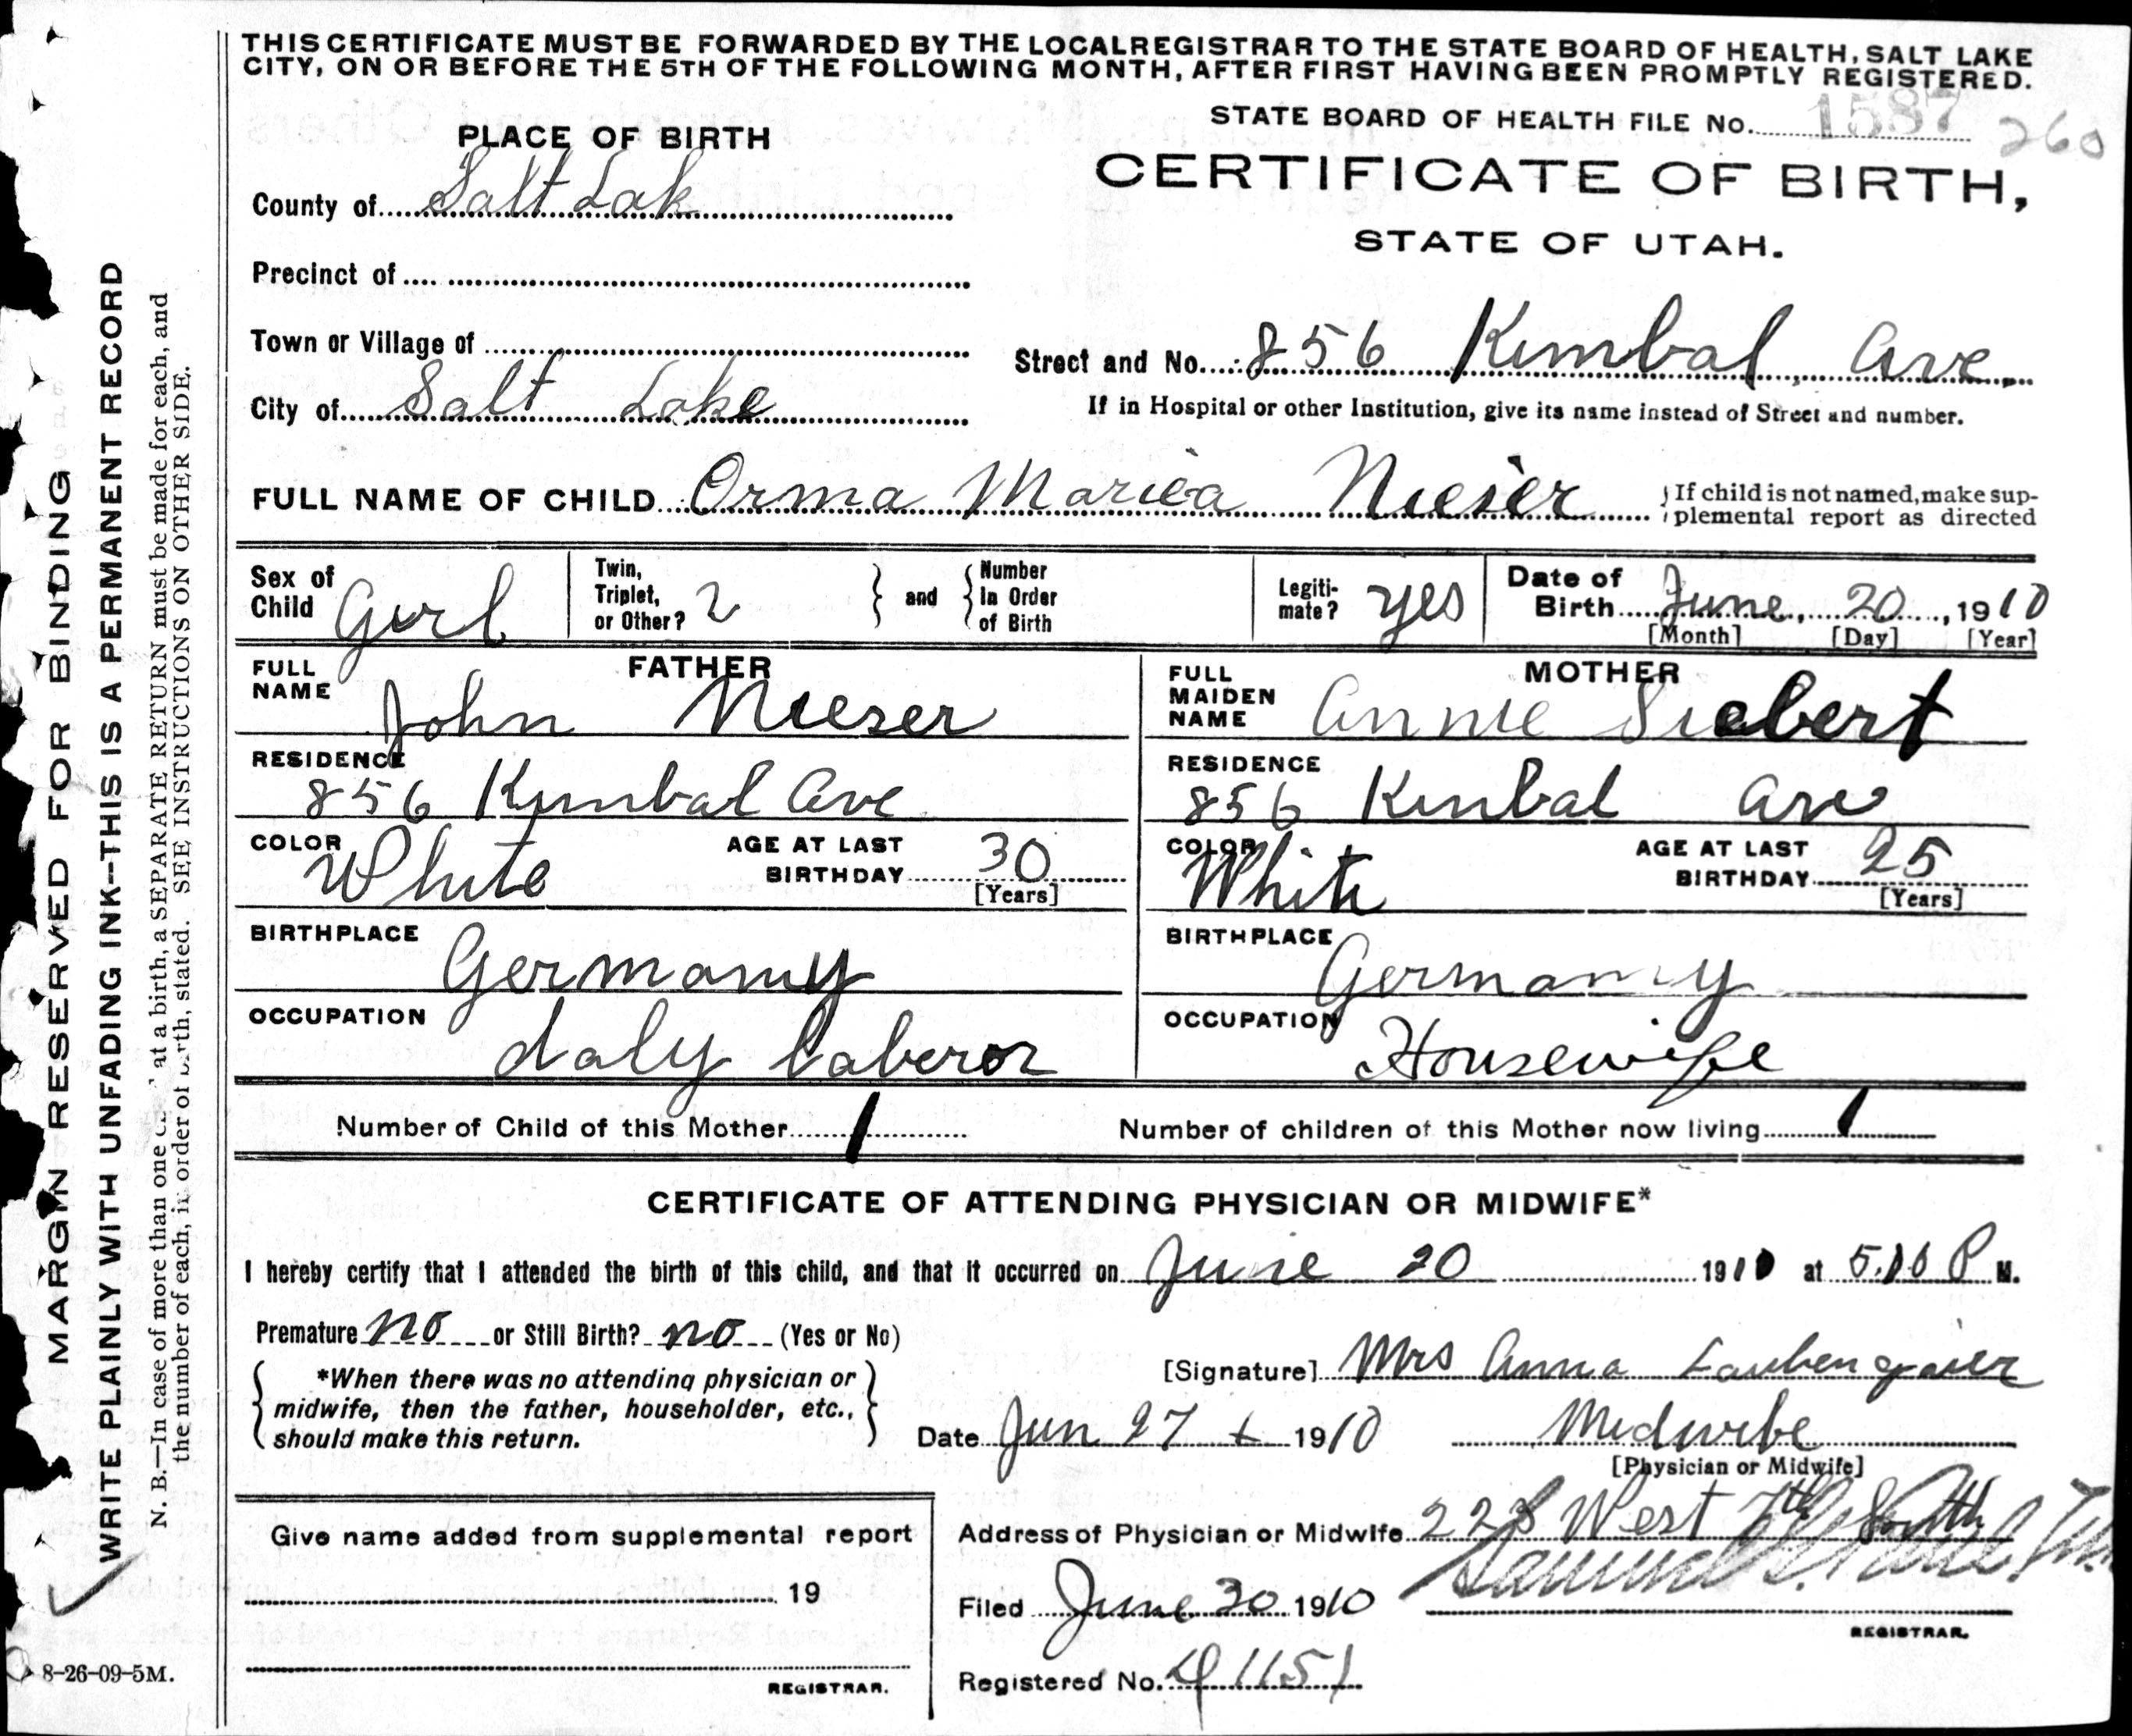 THIS CERTIFICATE MUST BE FORWARDED BY THE LOCAL REGISTRAR TO THE STATE BOARD OF HEALTH, SALT LAKE
CITY, ON OR BEFORE THE 5TH OF THE FOLLOWING MONTH, AFTER FIRST HAVING BEEN PROMPTLY REGISTERED.
STATE BOARD OF HEALTH FILE No. 1587 260
PLACE OF BIRTH
CERTIFICATE OF BIRTH,
STATE OF UTAH.
County of Salt Lak
Precinct of
Town or Village of
Street and No. 856 Kimbal Ave.
City of Salt Lake
If in Hospital or other Institution, give its name instead of Street and number.
FULL NAME OF CHILD Orma Mariea Nieser
If child is not named, make sup-
plemental report as directed
Sex of Child Girl
Twin, Triplet, or Other? 2
and
Number In Order of Birth
Legiti-mate? yes
Date of Birth June, 20, 1910
[Month] [Day] [Year]
FATHER
FULL NAME John Nieser
RESIDENCE
856 Kimbal Ave
COLOR White
AGE AT LAST BIRTHDAY 30
[Years]
BIRTHPLACE
Germany
OCCUPATION
daly laberor
MOTHER
FULL MAIDEN NAME Annie Siebert
RESIDENCE
856 Kinbal Ave
COLOR White
AGE AT LAST BIRTHDAY 25
[Years]
BIRTHPLACE
Germany
OCCUPATION
Housewife
Number of Child of this Mother 1
Number of children of this Mother now living 1
CERTIFICATE OF ATTENDING PHYSICIAN OR MIDWIFE*
I hereby certify that I attended the birth of this child, and that it occurred on June 20 1910 at P M.
Premature no or Still Birth? no (Yes or No)
*When there was no attending physician or
midwife, then the father, householder, etc.,
should make this return.
[Signature] Mrs Anna Laubengaier
Date Jun 27 1910
Midwibe
[Physician or Midwife]
Address of Physician or Midwife 228 West 7th South
Give name added from supplemental report
19
REGISTRAR.
Filed June 30 1910
Samuel
REGISTRAR.
Registered No. 1151
MARGIN RESERVED FOR BINDING
WRITE PLAINLY WITH UNFADING INK—THIS IS A PERMANENT RECORD
N. B.—In case of more than one at a birth, a SEPARATE RETURN must be made for each, and
the number of each, in order of birth, stated. SEE INSTRUCTIONS ON OTHER SIDE.
8-26-09-5M.